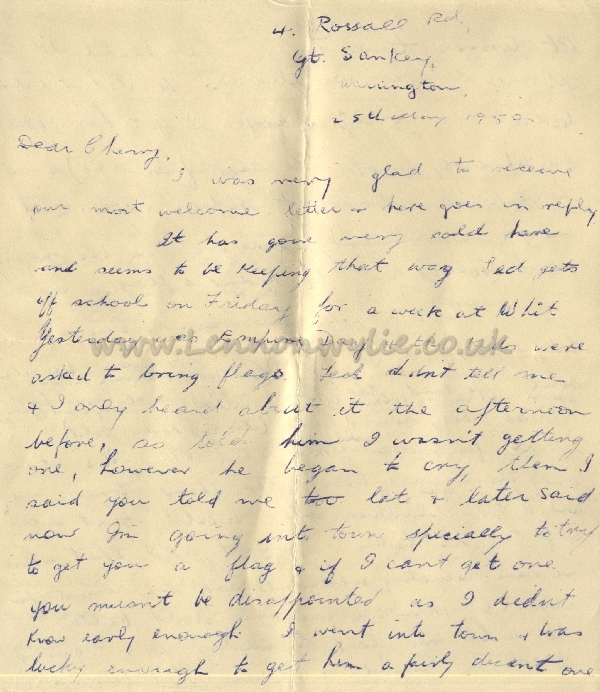 4. Rossall Rd,
Gt. Sankey,
Warrington,
25th May 1950
Dear Cherry,
I was very glad to receive
your most welcome letter & here goes in reply.
It has gone very cold here
and seems to be keeping that way. Ted gets
off school on Friday for a week at Whit
Yesterday was Empire Day & the kids were
www.Lennonwylie.co.uk
asked to bring flags. Ted didnt tell me
& I only heard about it the afternoon
before, so told him I wasn't getting
one, however he began to cry, then I
said you told me too late & later said
now I'm going into town specially to try
to get you a flag & if I cant get one
you musn't be disappointed as I didnt
know early enough. I went into town & was
lucky enough to get him a fairly decent one